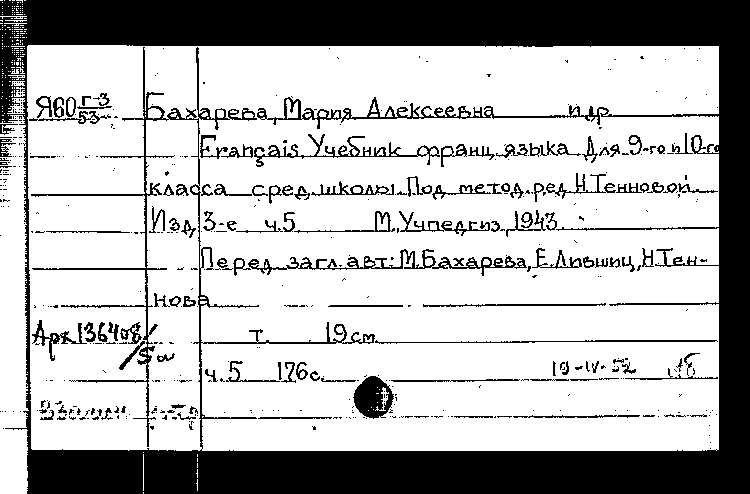 Я60 Г-3/53 Бахарева, Мария Алексеевна и др.
Français. Учебник франц. языка для 9-го и 10-го
класса сред. школы. Под метод. ред. Н. Тенновой.
Изд. 3-е ч. 5 М., Учпедгиз, 1943.
Перед загл. авт.: М. Бахарева, Е. Лившиц, Н. Тен-
нова.
Арх. 136408/5а т. 19 см.
ч. 5 176 с. 19-IV-52